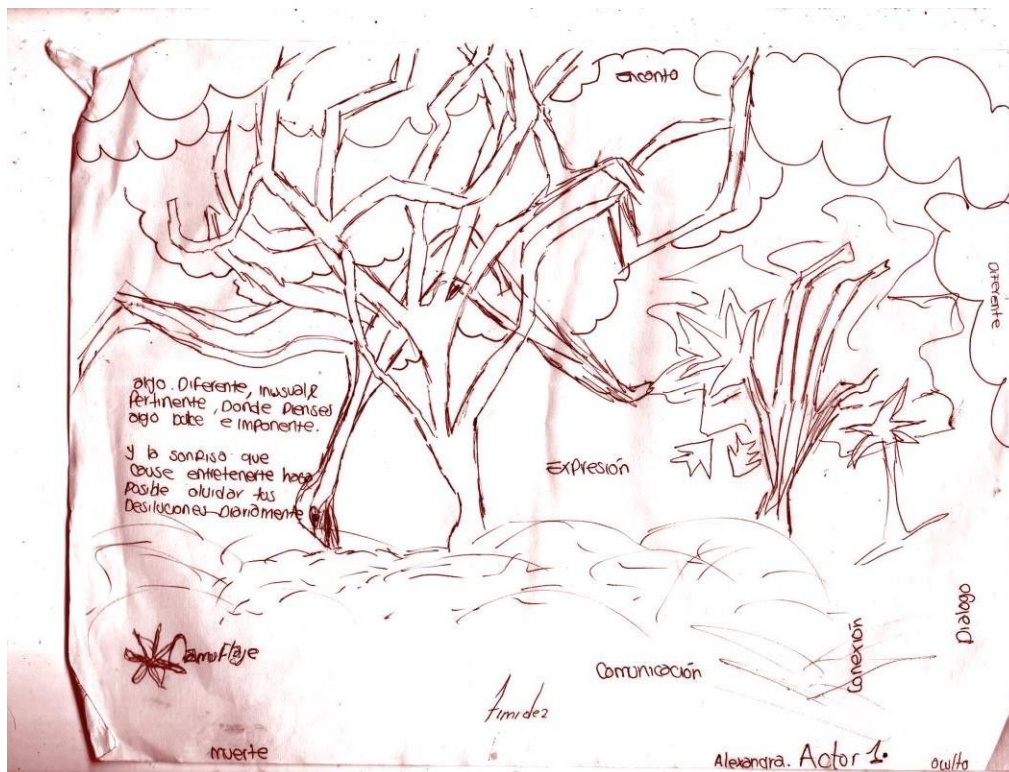 encanto
Diferente
algo. Diferente, inusual &
Pertinente, Donde Pienses
algo dulce e imponente.
y la sonrisa que
cause entretenerte haga
posible olvidar tus
Desiluciones Diariamente
Expresión
Camuflaje
Comunicación
Conexión
Dialogo
Timidez
muerte
Alexandra. Actor 1.
oculto